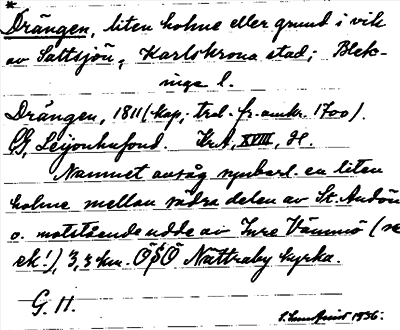 *
Drängen, liten holme eller grund i vik
av Saltsjön, Karlskrona stad; Blek-
inge l.
Drängen, 1811 (kop, trol. fr. omkr. 1700).
CG, Leijonhufvud. KrA, XVIII, H.
Namnet avsåg synbarl. en liten
holme mellan södra delen av St. Audön
o. motstående udde av Inre Vämmö (se
ek!), 3,3 km. ÖSÖ Nättraby kyrka.
G. H. 1936.